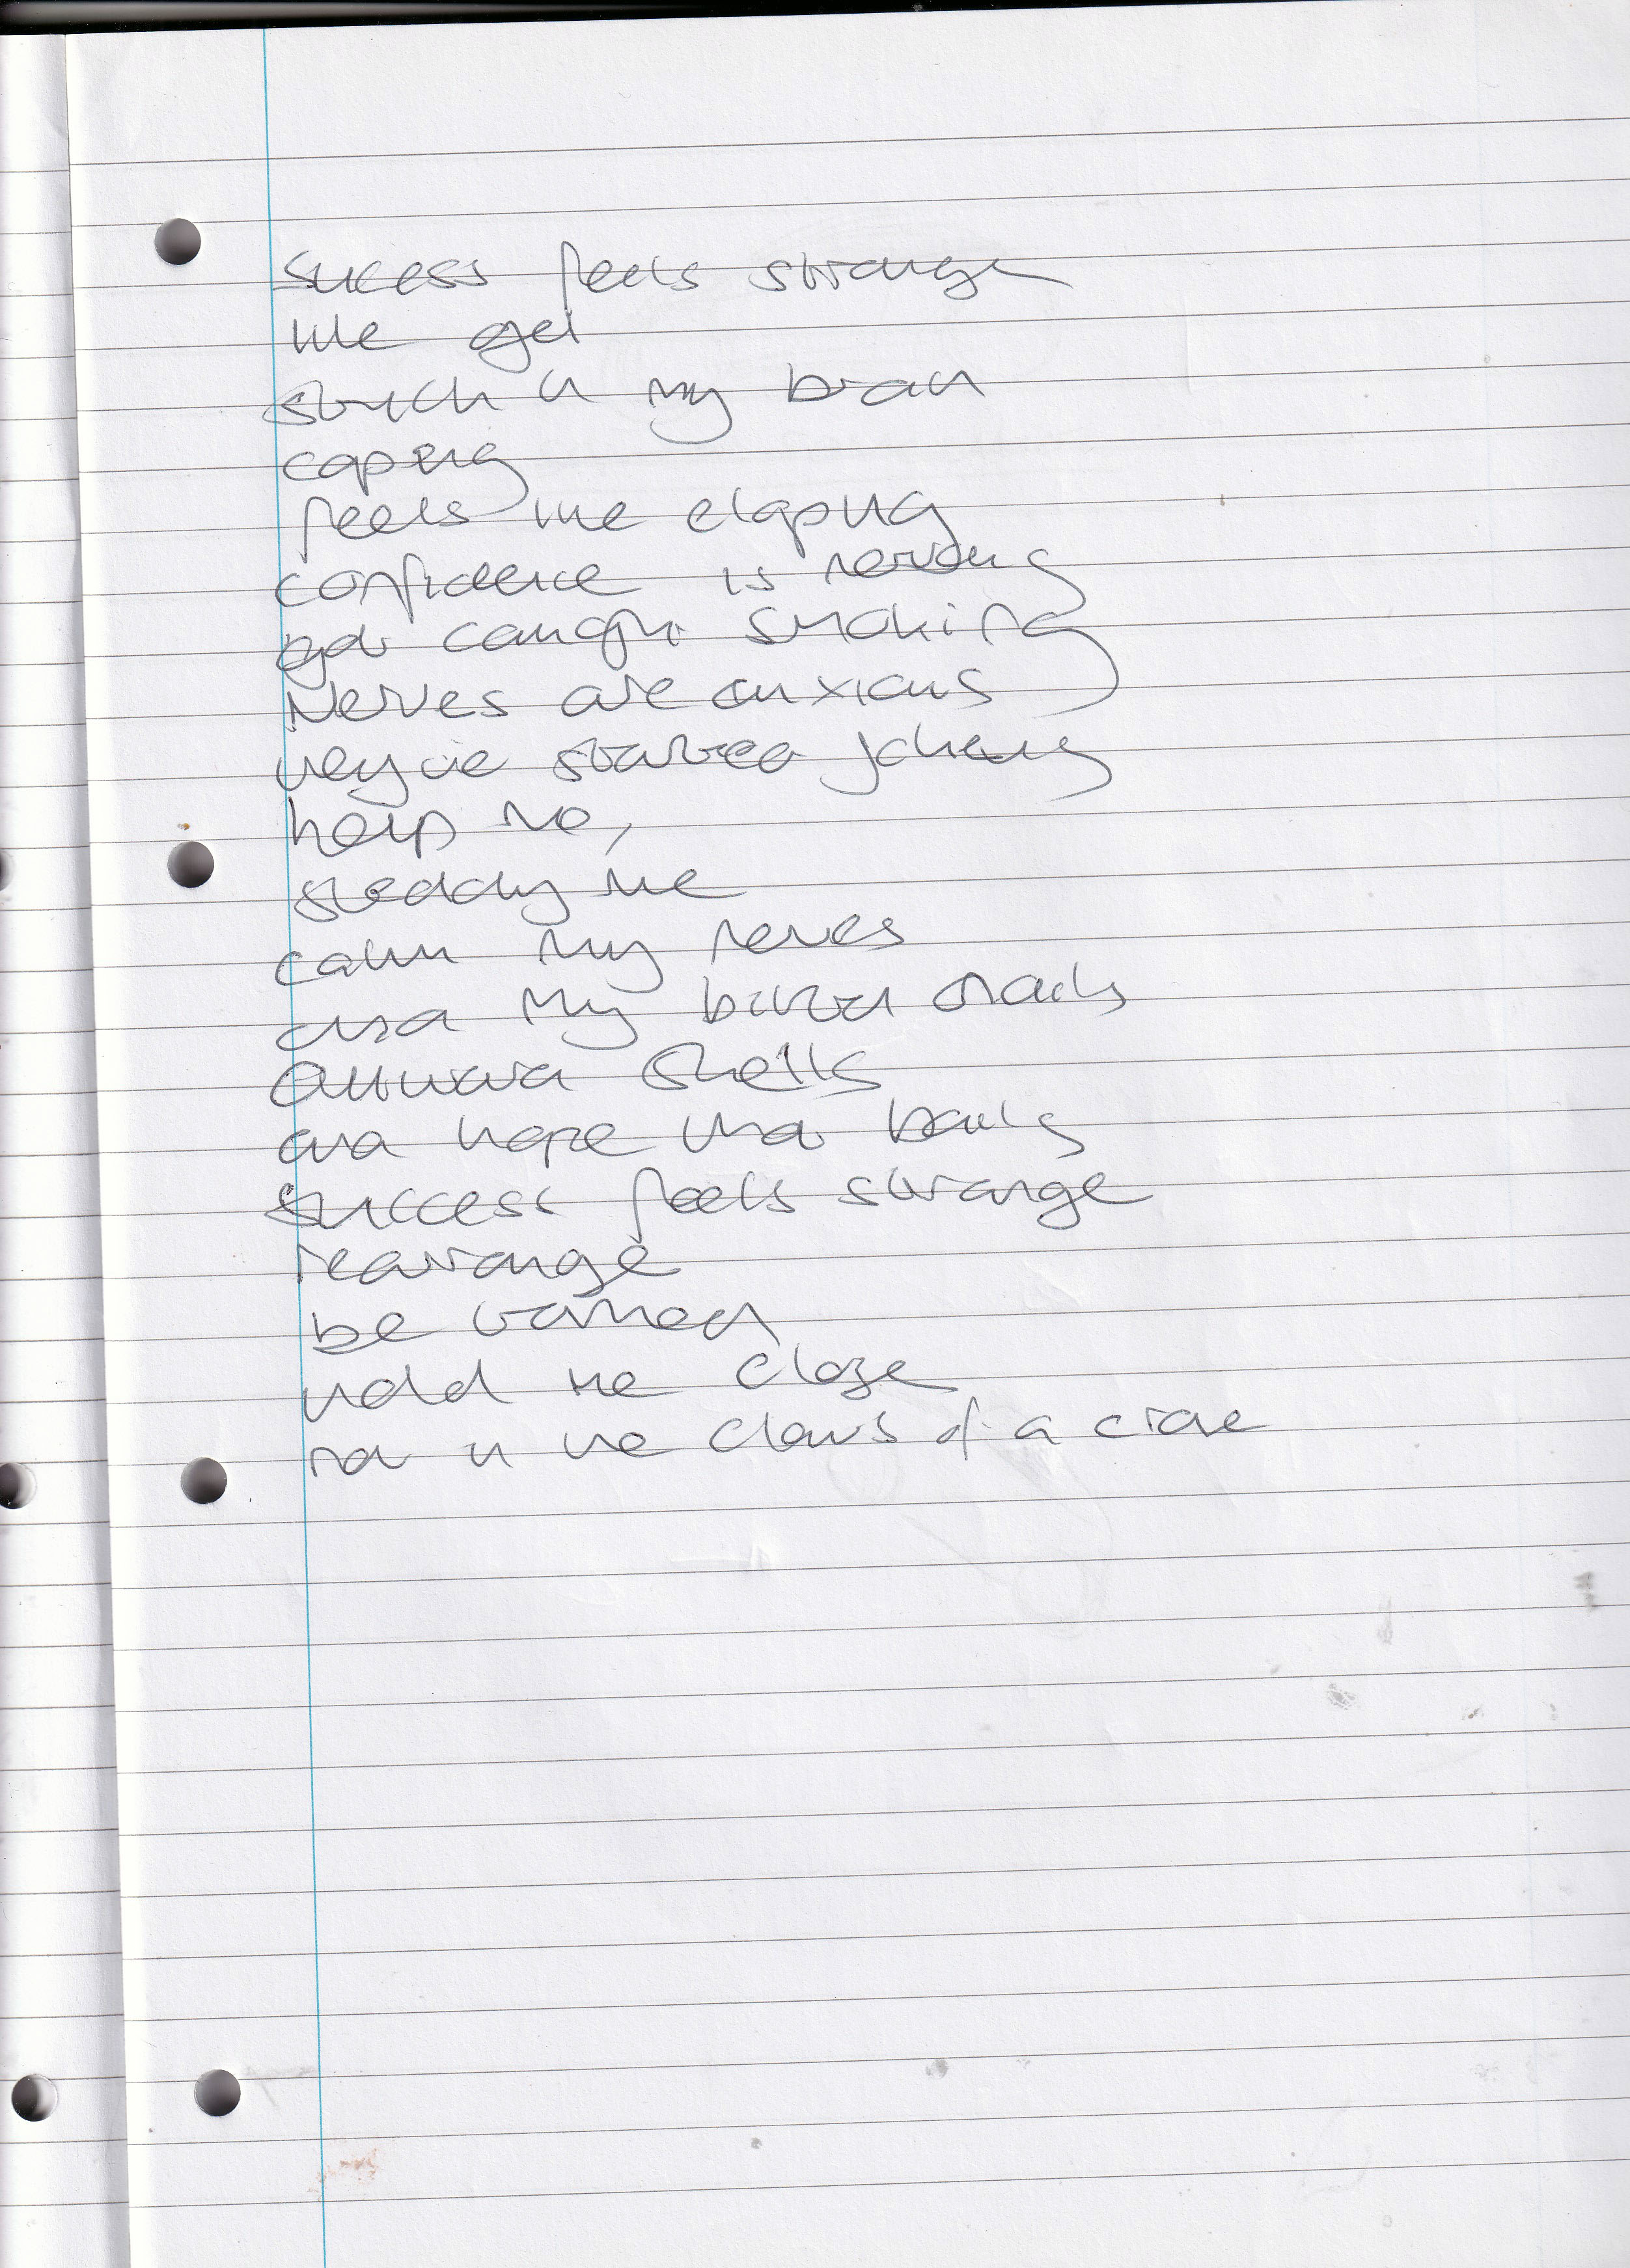 sucess feels strange
like gel
stuck in my brain
coping
feels like
confidence is
got caught smoking
Nerves are anxious
they've started
help me,
steady me
calm my nerves
and my bitten nails
outward shells
and hope that
success feels strange
rearange
be
hold me close
not in the claws of a